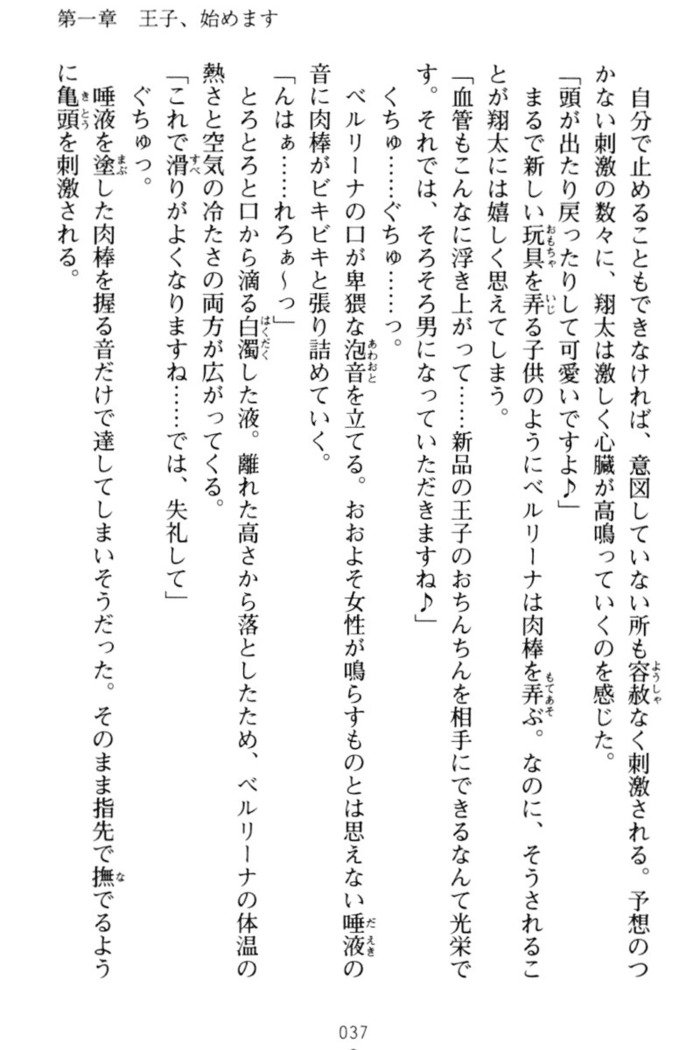 第一章　王子、始めます
自分で止めることもできなければ、意図していない所も容赦なく刺激される。予想のつ
かない刺激の数々に、翔太は激しく心臓が高鳴っていくのを感じた。
「頭が出たり戻ったりして可愛いですよ♪」
まるで新しい玩具を弄る子供のようにベルリーナは肉棒を弄ぶ。なのに、そうされるこ
とが翔太には嬉しく思えてしまう。
「血管もこんなに浮き上がって……新品の王子のおちんちんを相手にできるなんて光栄で
す。それでは、そろそろ男になっていただきますね♪」
くちゅ……ぐちゅ……っ。
ベルリーナの口が卑猥な泡音を立てる。おおよそ女性が鳴らすものとは思えない唾液の
音に肉棒がビキビキと張り詰めていく。
「んはぁ……れろぁ～っ」
とろとろと口から滴る白濁した液。離れた高さから落としたため、ベルリーナの体温の
熱さと空気の冷たさの両方が広がってくる。
「これで滑りがよくなりますね……では、失礼して」
ぐちゅっ。
唾液を塗した肉棒を握る音だけで達してしまいそうだった。そのまま指先で撫でるよう
に亀頭を刺激される。
037